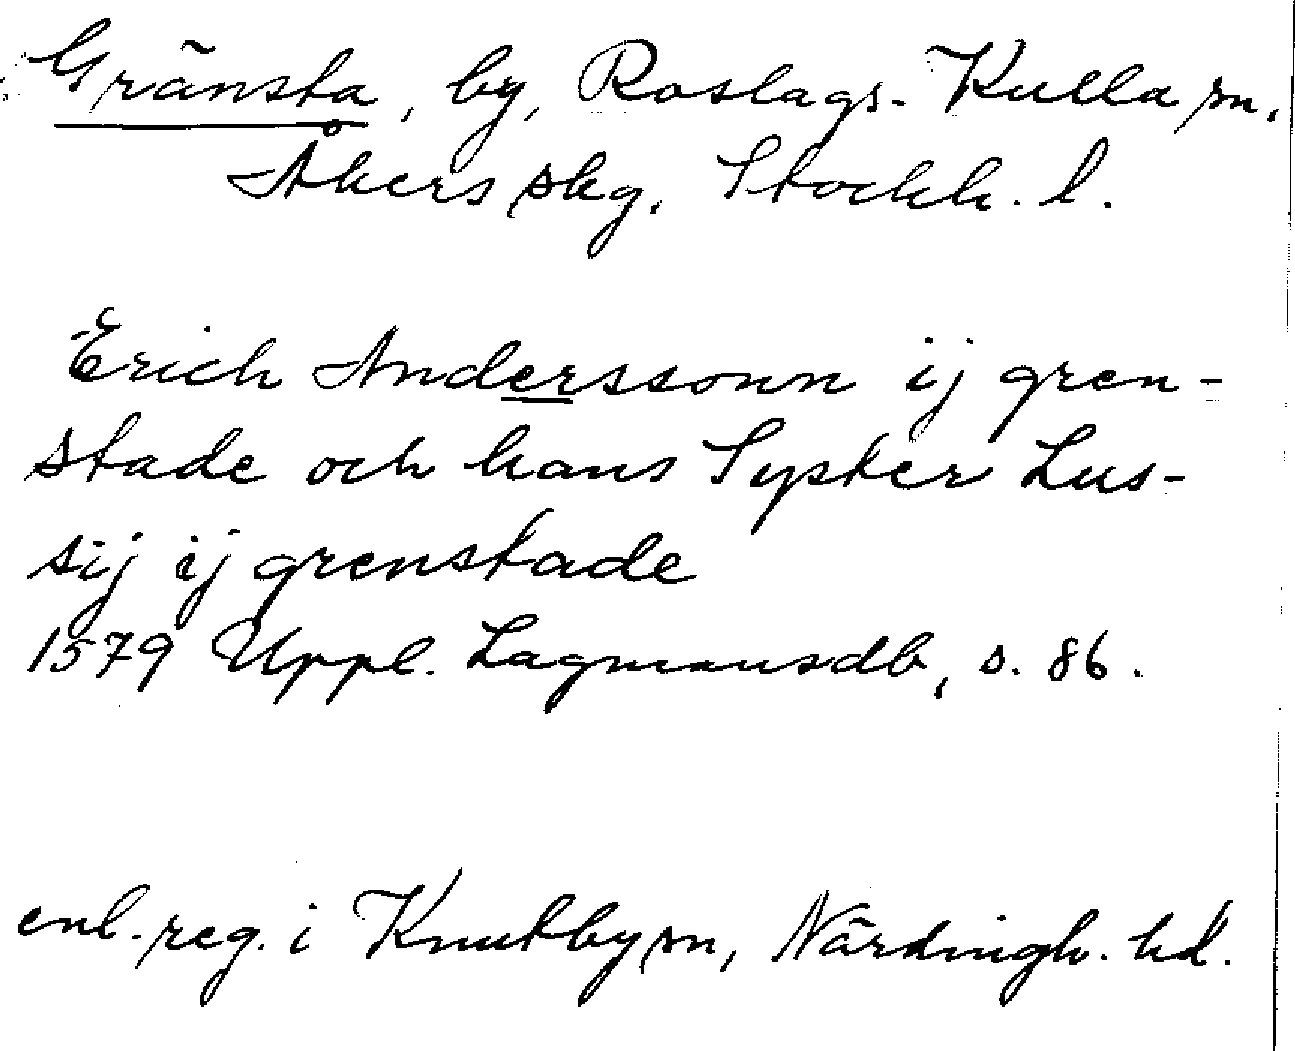 Gränsta, by, Roslags-Kulla sn.
Åkers skg. Stockh. l.
Erich Anderssonn ij gren-
stade och hans Syster Lus-
sij ij grenstade
1579 Uppl. Lagmansdb, s. 86.
enl. reg. i Knutby sn, Närdingh. hd.